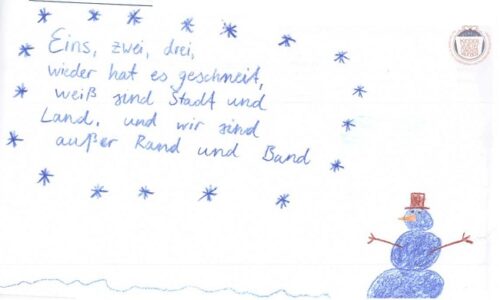 Eins, zwei, drei,
wieder hat es geschneit,
weiß sind Stadt und
Land, und wir sind
außer Rand und Band